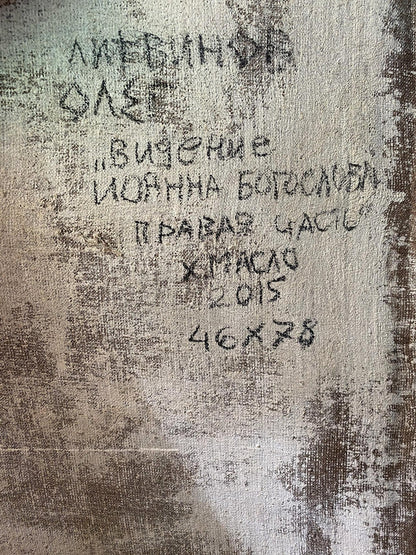 ЛИТВИНОВ
ОЛЕГ
„Видение
ИОАННА БОГОСЛОВА
ПРАВАЯ ЧАСТЬ"
Х.МАСЛО
2015
46Х78